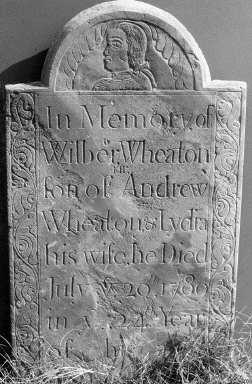 In Memory of
Wilber Wheaton
son of Mr Andrew
Wheaton & Lydia
his wife, he Died
July ye 20th 1780
in ye 24th Year
of his